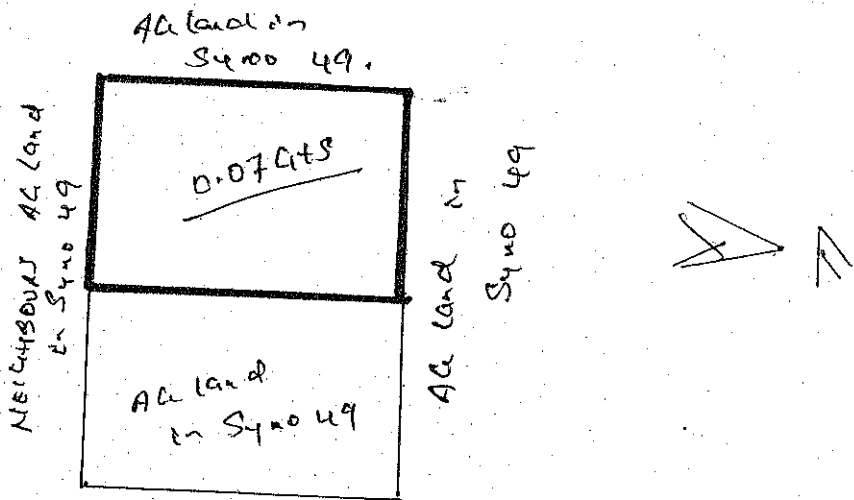 AG land in
Syno 49.
NEIGHBOURS AG land
in Syno 49
0.07 Gts
AG land in
Syno 49
N
AG land
in Syno 49